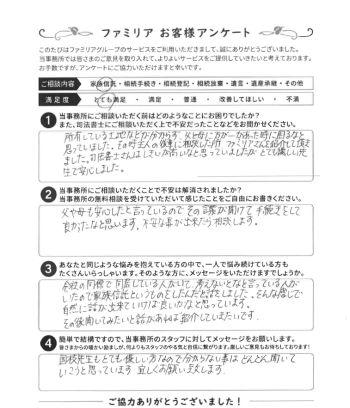 ファミリア お客様アンケート
このたびはファミリアグループのサービスをご利用いただきまして、誠にありがとうございました。
当事務所では皆さまのご意見を取り入れて、よりよいサービスをご提供していきたいと考えております。
お手数ですが、アンケートにご協力いただけますと幸いです。
ご相談内容 家族信託・相続手続き・相続登記・相続放棄・遺言・遺産承継・その他
満足度 とても満足 ・ 満足 ・ 普通 ・ 改善してほしい ・ 不満
1 当事務所にご相談いただく前はどのようなことにお困りでしたか?
また、司法書士にご相談いただく上で不安だったことなどをお聞かせください。
所有している土地などが分からず、父と母に万が一があった時に困るなと
思っていました。その時主人の後輩に相談した所 ファミリアさんを紹介して頂き
ました。司法書士さんはしきいが高いなと思っていましたが とても優しい先
生で安心しました。
2 当事務所にご相談いただくことで不安は解消されましたか?
当事務所の無料相談を受けていただいて感じたことをご自由にお書きください。
父や母も安心したと言っているので その言葉が聞けて 手続きをして
良かったなと思います。不安な事が出来たら相談します。
3 あなたと同じような悩みを抱えている方の中で、一人で悩み続けている方も
たくさんいらっしゃいます。そのような方に、メッセージをいただけますでしょうか。
会社の同僚で同居している人がいて 考えないとなと言っている人が
いたので家族信託というものをしたんだと話しました。そんな感じで
自然に話が出来ていければ良いかなと思っています。
その後聞いてみたいと話があれば紹介していきたいです。
4 簡単で結構ですので、当事務所のスタッフに対してメッセージをお願いします。
皆さまからの暖かい励ましが、何よりもスタッフのやる気と自信に繋がります。厳しいご意見もお待ちしております!
先生もとても優しい方なので分からない事は どんどん聞いて
いこうと思っています 宜しくお願い致します。
ご協力ありがとうございました!